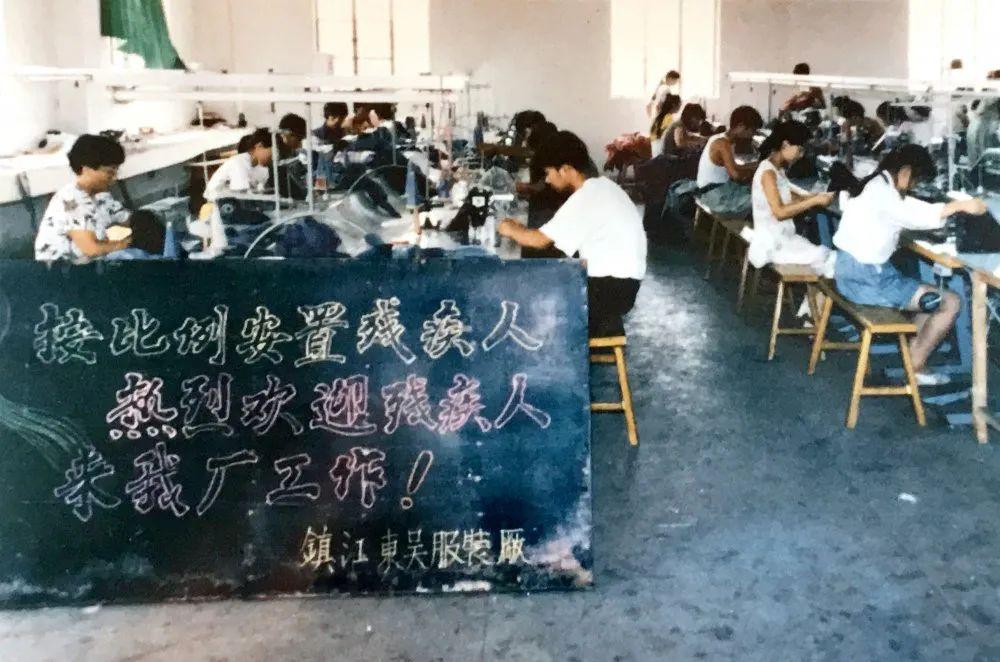 按比例安置残疾人
热烈欢迎残疾人
来我厂工作！
鎮江東吴服裝廠